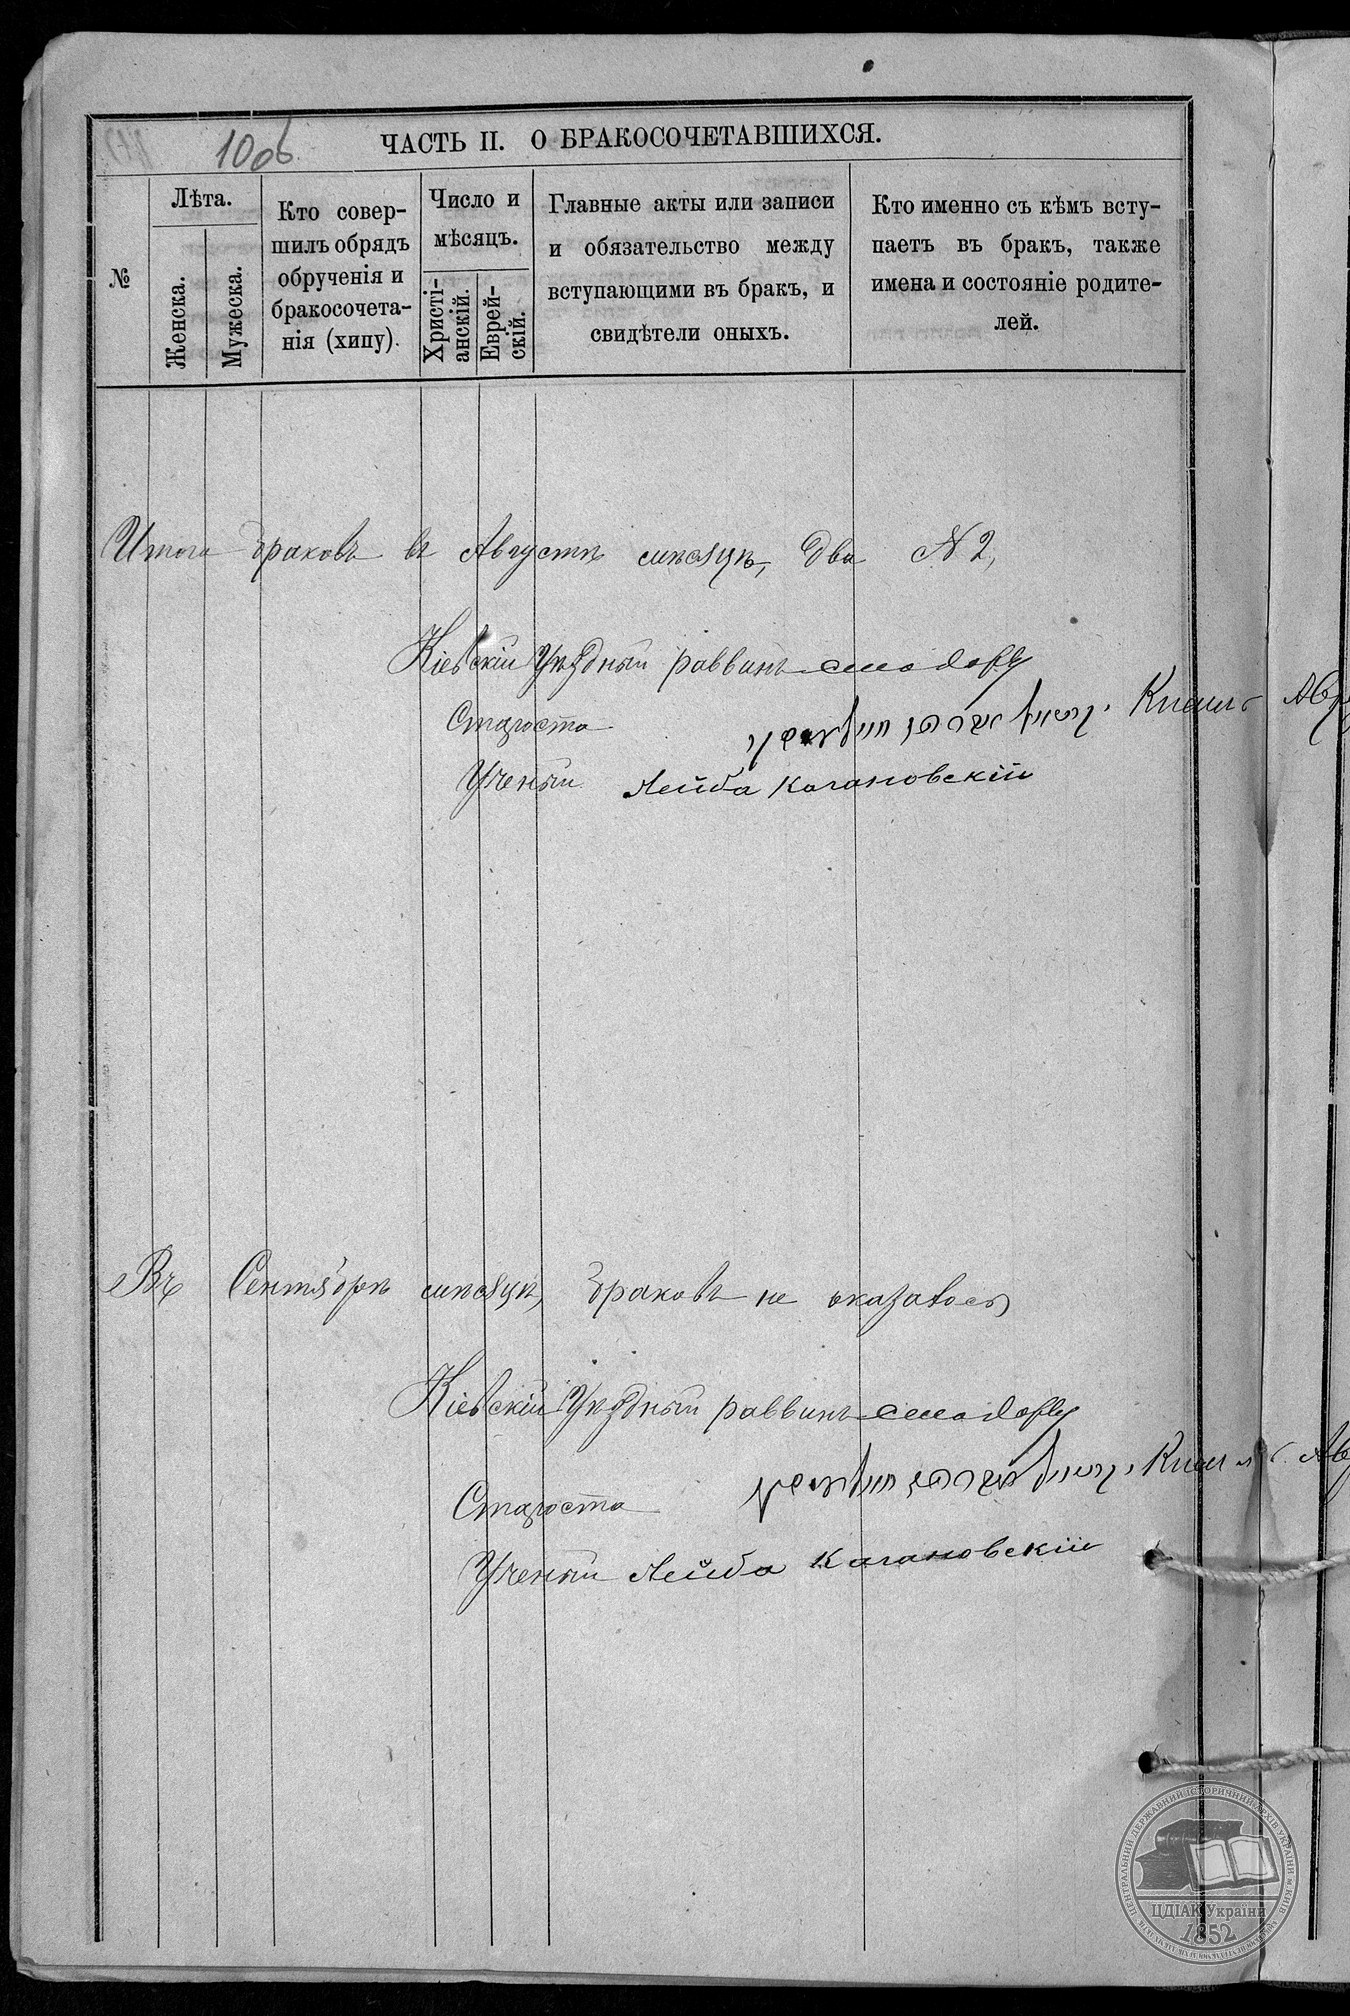 10об.
ЧАСТЬ II. О БРАКОСОЧЕТАВШИХСЯ.
№
Лѣта.
Женска.
Мужеска.
Кто совер-
шилъ обрядъ
обрученія и
бракосочета-
нія (хипу).
Число и
мѣсяцъ.
Христі-
анскій.
Еврей-
скій.
Главные акты или записи
и обязательство между
вступающими въ бракъ, и
свидѣтели оныхъ.
Кто именно съ кѣмъ всту-
паетъ въ бракъ, также
имена и состояніе родите-
лей.
Итого браковъ въ Августѣ мѣсяцѣ, два № 2,
Кіевскій Уѣздный раввинъ
Староста
Ученый Лейба Кагановскій
Въ Сентябрѣ мѣсяцѣ, браковъ не оказалось
Кіевскій Уѣздный раввинъ
Староста
Ученый Лейба Кагановскій
ЦЕНТРАЛЬНИЙ ДЕРЖАВНИЙ ІСТОРИЧНИЙ АРХІВ УКРАЇНИ м. КИЇВ
ЦДІАК України
1852